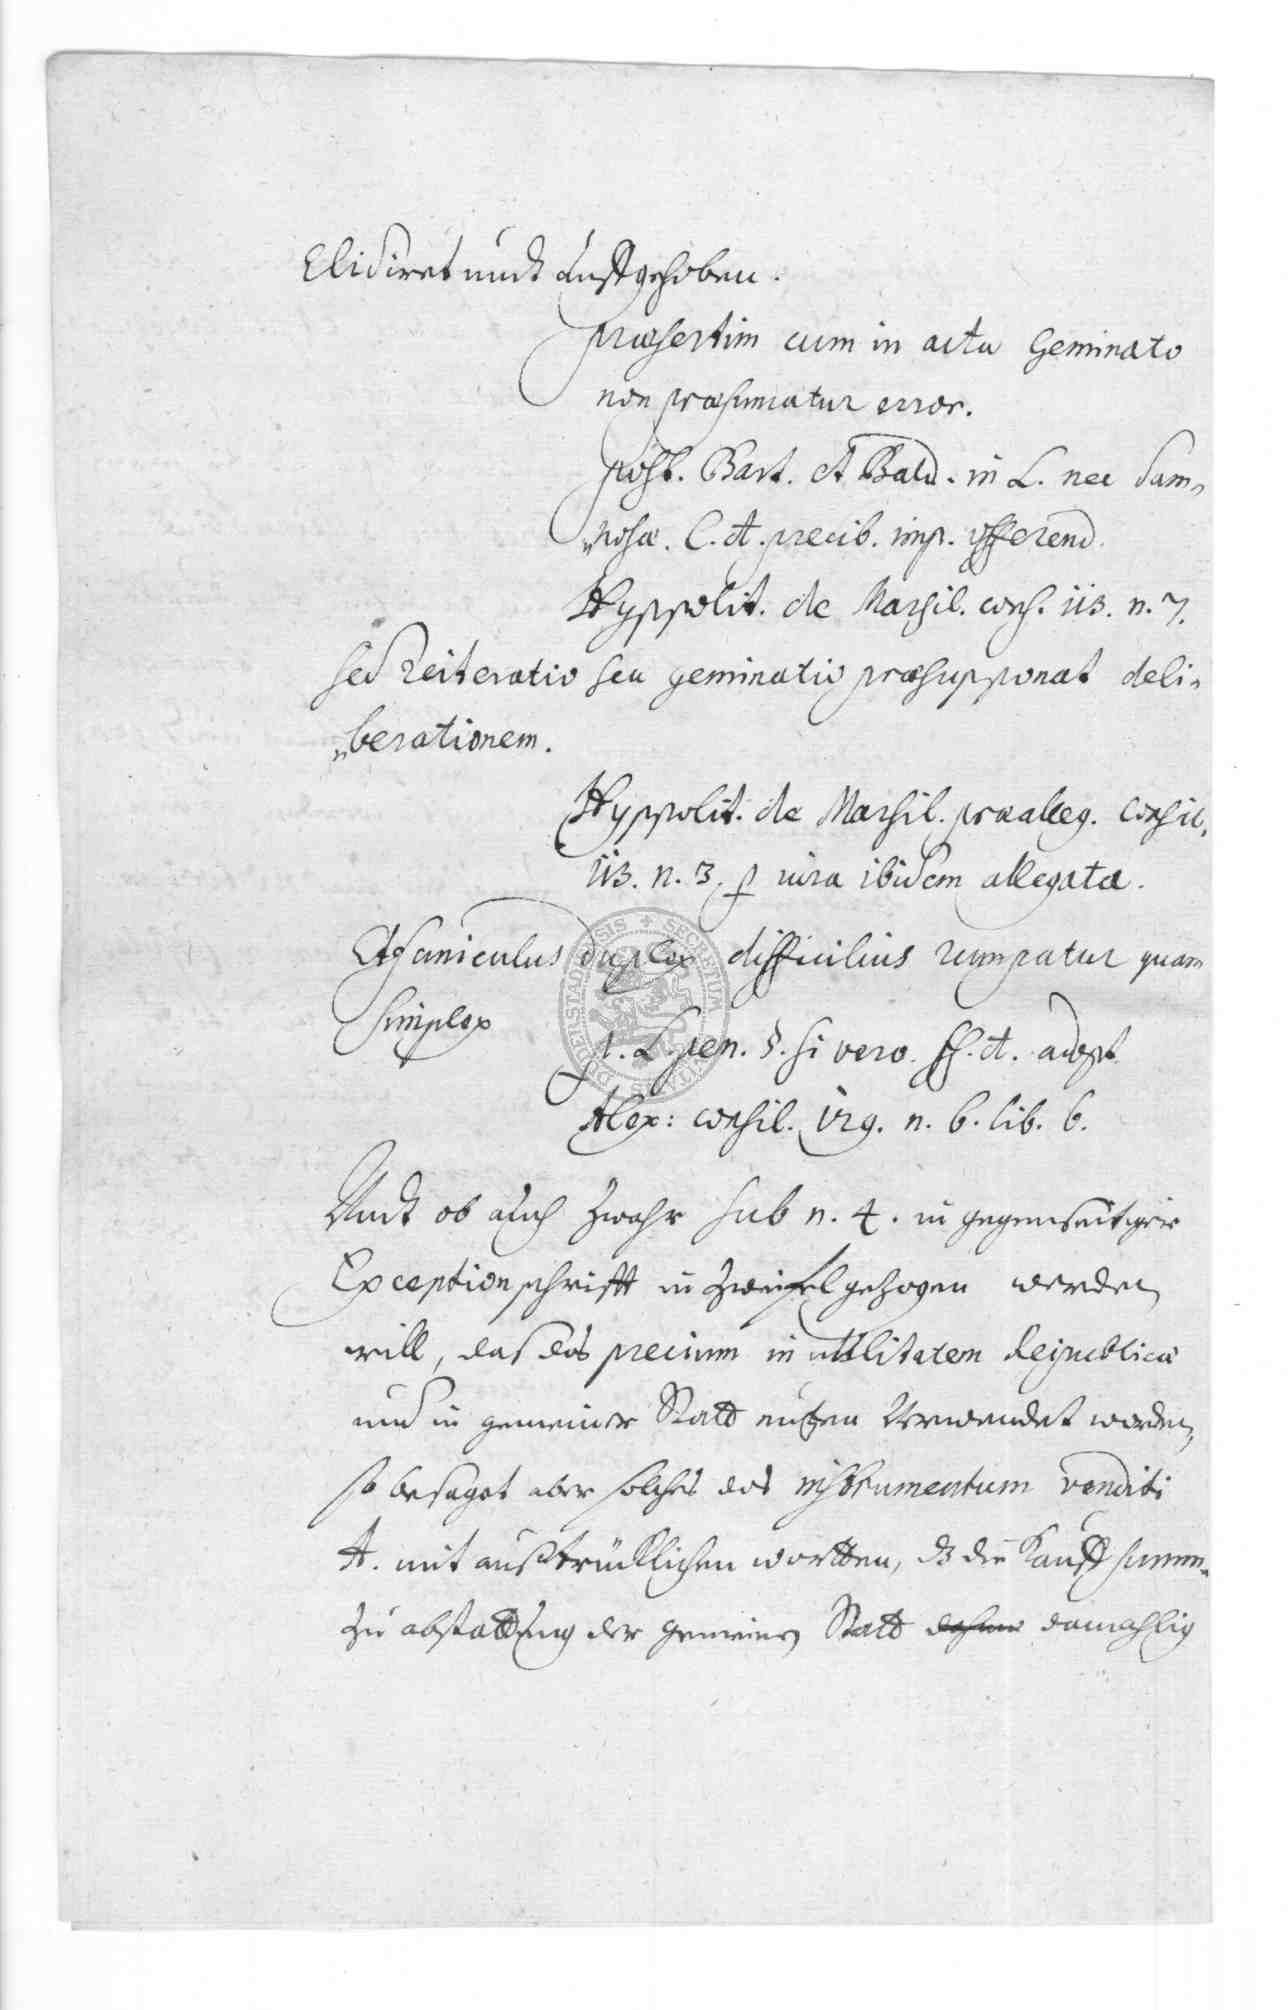 Elidiret undt auffgehoben.
præsertim cum in actu Geminato
non præsumatur error.
post. Bart. et Bald. in L. nec dam„
„nosa. C. de. precib. imp. offerend.
Hyppolit. de Marsil. cons. 113. n. 7.
sed Reiteratio seu geminatio præsupponat deli„
„berationem.
Hyppolit. de Marsil. præalleg. consil.
113. n. 3. p iura ibidem allegata.
Et funiculus duplex difficilius rumpatur quam
simplex
p. L. pen. §. si vero. ff. de. adopt.
Alex: consil. 129. n. 6. lib. 6.
Undt ob auch zwahr sub n. 4. in gegenseitiger
Exceptionschrifft in Zweiffel gezogen werden
will, daß das precium in utilitatem Reipublicæ
und in gemeiner Statt nutzen Verwendet worden,
so besaget aber solches das instrumentum venditi
A. mit außtrücklichen wortten, dz die Kauff summ„
Zu abstattung der gemeinen Statt damahlig
SECRETUM CIVITATIS DUDERSTADENSIS